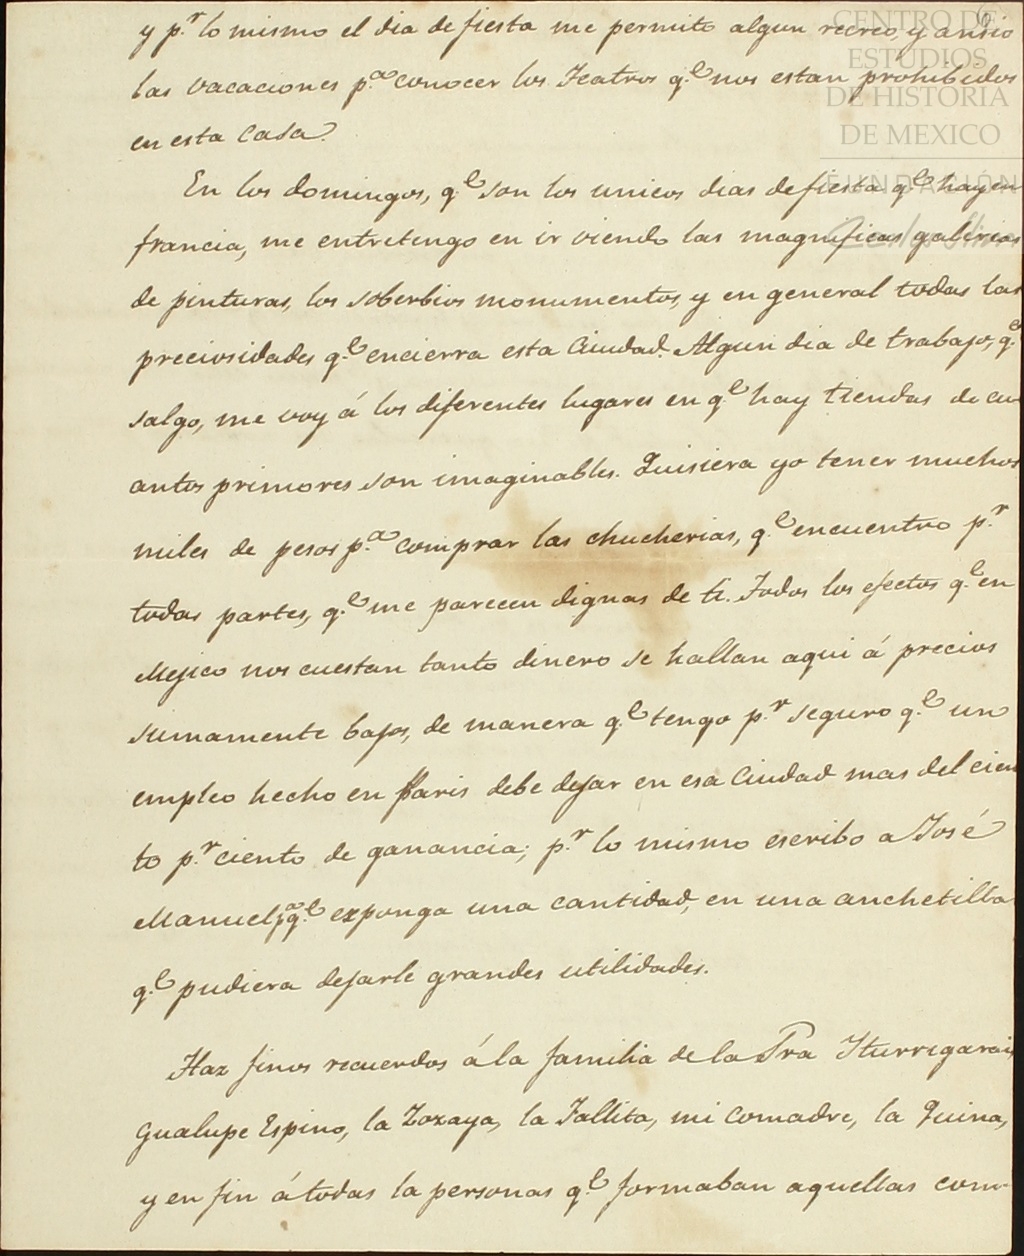 y p.r lo mismo el dia de fiesta me permito algun recreo, y ansio
las vacaciones p.a conocer los Teatros q.e nos estan prohibidos
en esta Casa.
En los domingos, q.e son los unicos dias de fiesta q.e hay en
francia, me entretengo en ir viendo las magnificas galerias
de pinturas, los soberbios monumentos, y en general todas las
preciosidades q.e encierra esta Ciudad. Algun dia de trabajo, q.e
salgo, me voy á los diferentes lugares en q.e hay tiendas de cu
antos primores son imaginables. Quisiera yo tener muchos
miles de pesos p.a comprar las chucherias, q.e encuentro p.r
todas partes, q.e me parecen dignas de ti. Todos los efectos q.e en
Mejico nos cuestan tanto dinero se hallan aqui á precios
sumamente bajos, de manera q.e tengo p.r seguro q.e un
empleo hecho en Paris debe dejar en esa Ciudad mas del cien
to p.r ciento de ganancia; p.r lo mismo escribo a José
Manuel, p.a q.e exponga una cantidad, en una anchetilla
q.e pudiera dejarle grandes utilidades.
Haz finos recuerdos á la familia de la Sra Iturrigarai,
Gualupe Espino, la Zozaya, la Tallita, mi Comadre, la Quina,
y en fin á todas la personas q.e formaban aquellas com-
CENTRO DE
ESTUDIOS
DE HISTORIA
DE MEXICO
FUNDACIÓN
Carlos Slim